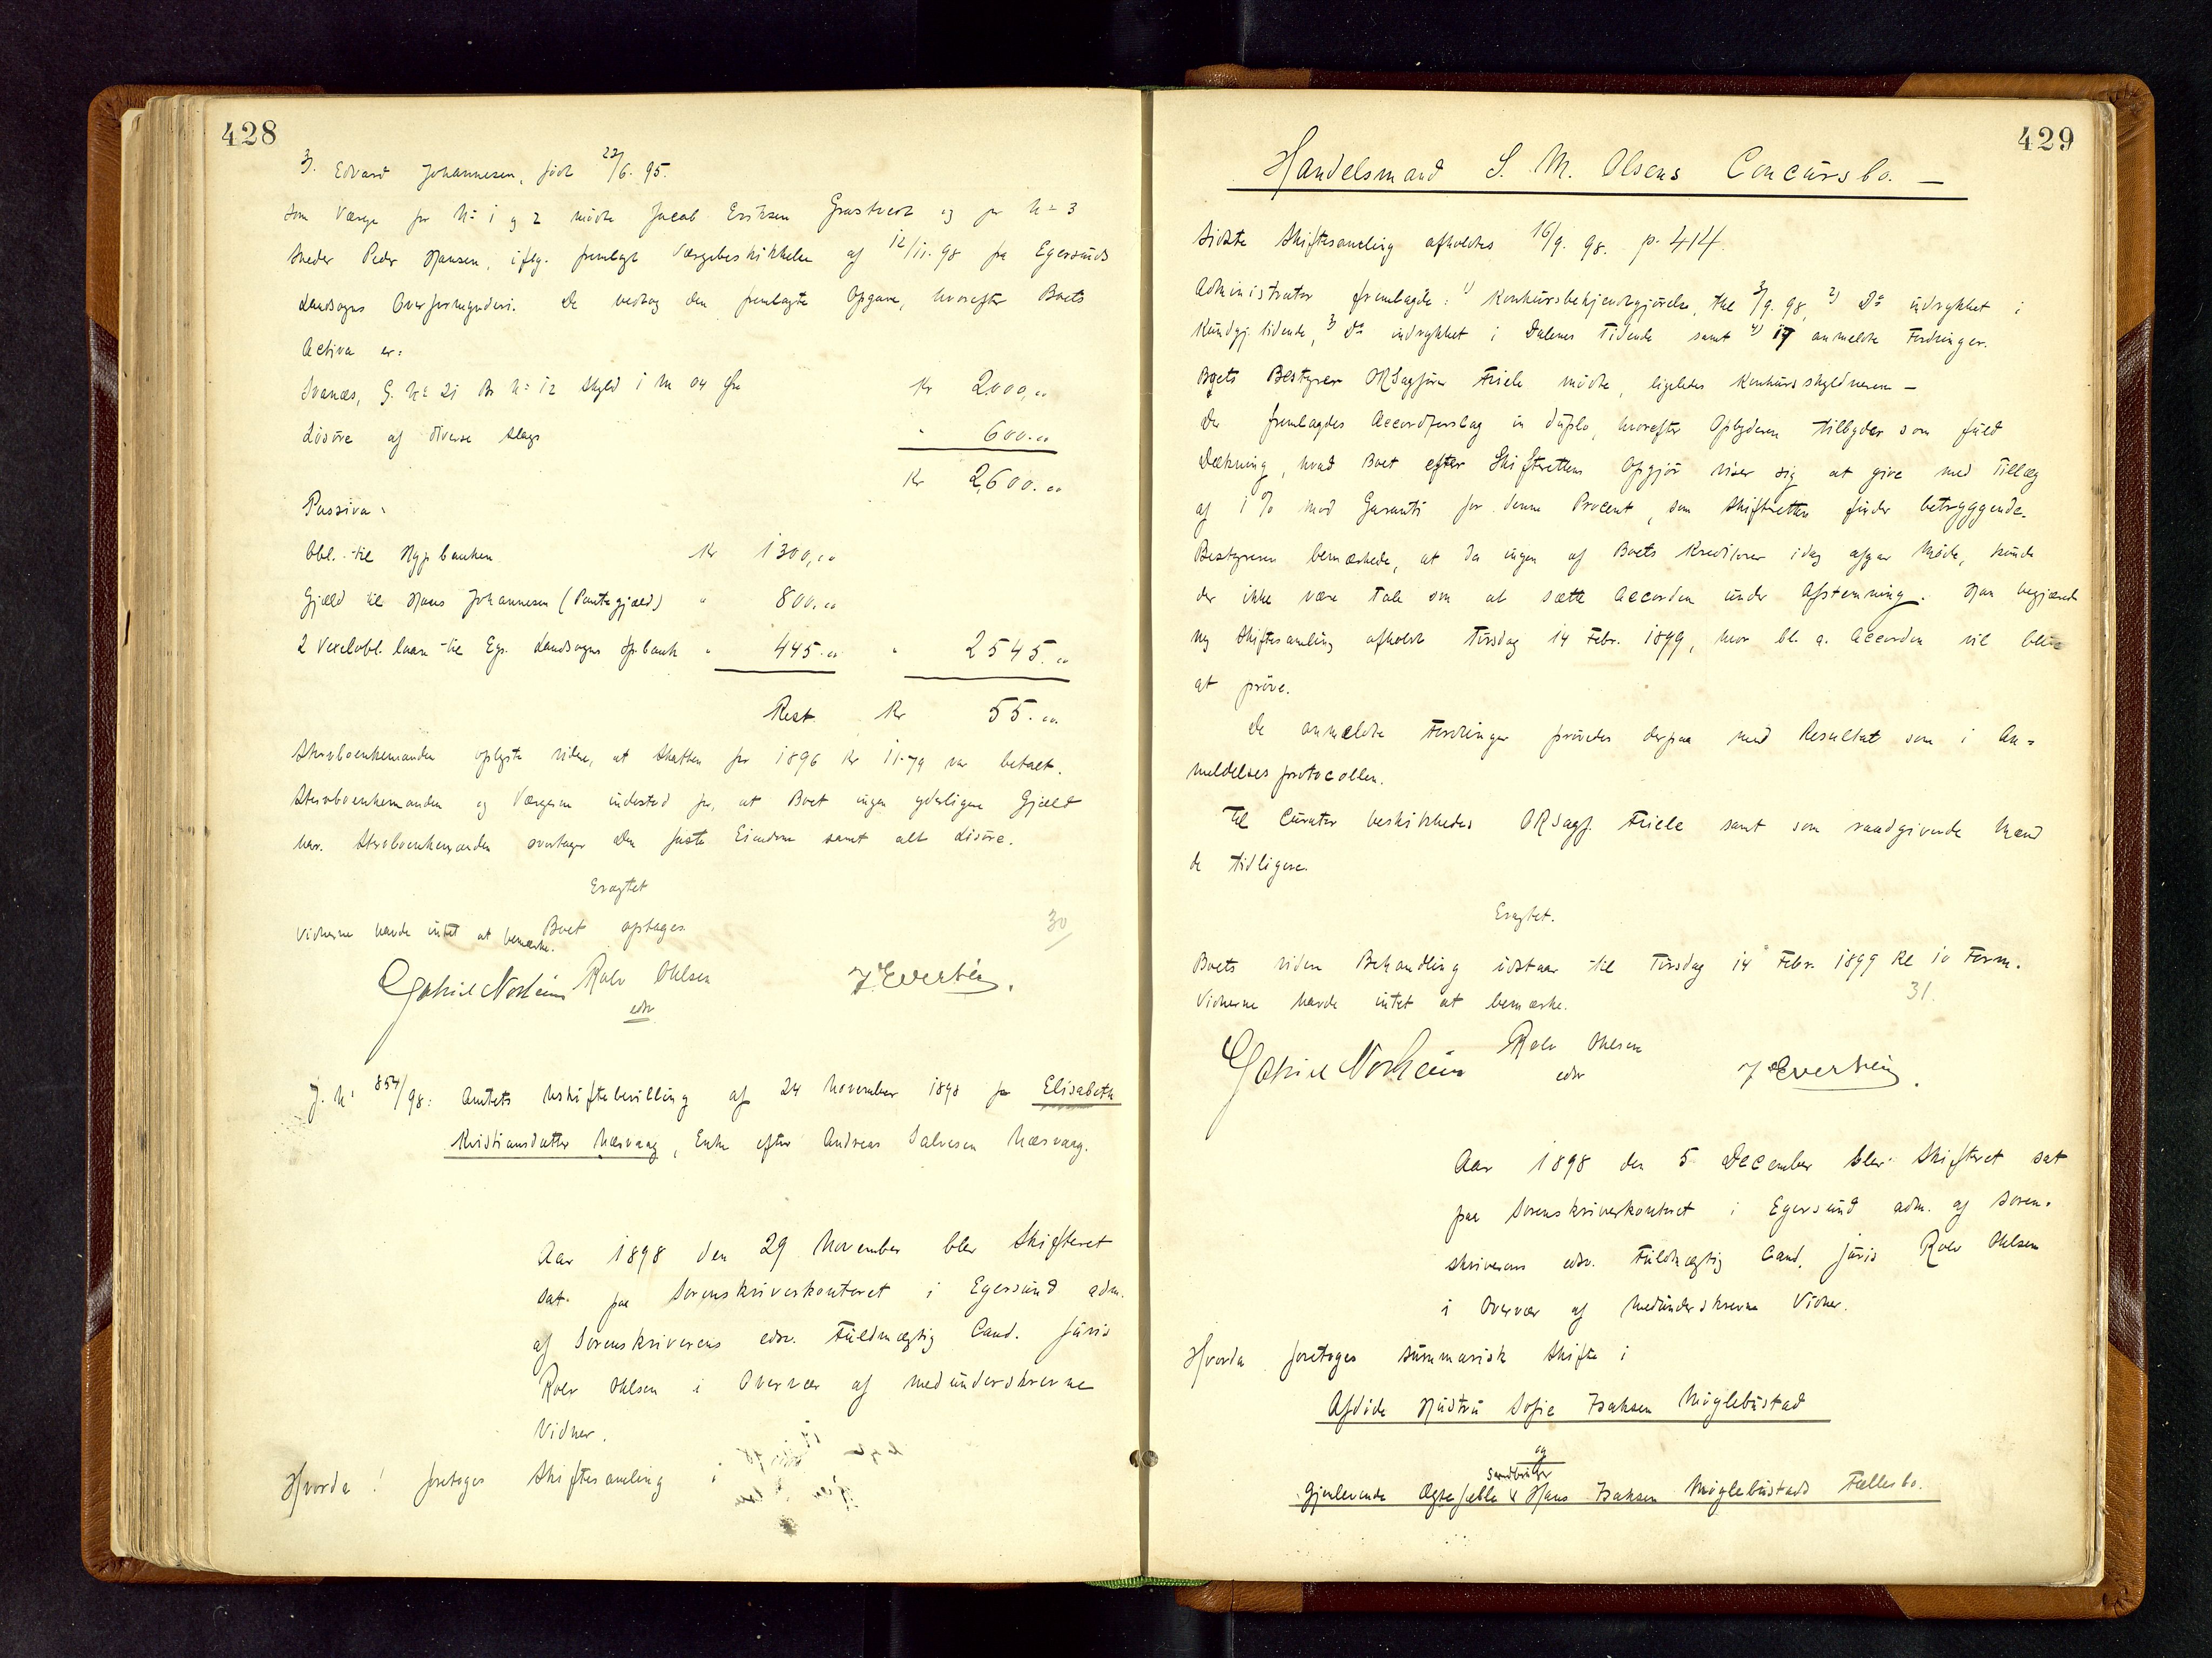 428
3. Edvard Johannesen, född 22/6. 95.
Som Værge for No 1 og 2 mødte Jacob Eriksen Grastveit og for No 3
Snedker Peder Hansen, iflg. fremlagt Værgebeskikkelse af 12/11. 98 fra Egersunds
Landsogns Overformynderi. De vedtog den fremlagte Opgave, hvorefter Boets
Activa er:
Svanæs, G. No 21 Br. No 12 Skyld 1 M 04 Øre Kr 2000,00
Løsøre af diverse Slags " 600.00
Kr 2,600.00
Passiva:
Obl. til Hyp.banken Kr 1300,00
Gjæld til Hans Johannesen (Pantegjæld) " 800.00
2 Vexelobl. laan til Eg. Landsogns Sp.bank " 445.00 " 2545.00
Rest Kr 55.00
Stervboenkemanden oplyste videre, at Skatten for 1896 Kr 11.79 var betalt.
Stervboenkemanden og Værgerne indestod for, at Boet ingen yderligere Gjæld
har. Stervboenkemanden overtager den faste Eiendom samt alt Løsøre.
Eragtet
Boet optages.
Vidnerne havde intet at bemærke.
30
Gabriel Norheim Rolv Ohlsen
edsv
J. No 854/98: Amtets Uskiftebevilling af 24 November 1898 for Elisabeth
Kristiansdatter Næsvaag, Enke efter Andreas Salvesen Næsvaag.
Aar 1898 den 29 November blev Skifteret
sat paa Sorenskriverkontoret i Egersund adm.
af Sorenskriverens edsv. Fuldmægtig Cand. juris
Rolv Ohlsen i Overvær af medunderskrevne
Vidner.
Hvorda! foretoges Skiftesamling i
429
Handelsmand S. M. Olsens Concursbo. —
Sidste Skiftesamling afholdtes 16/9. 98. p. 414.
Administrator fremlagde: 1) Konkursbekjendtgjørelse, 3/9. 98, 2) Do indrykket i
Kundgj. tidende, 3) Do indrykket i Dalenes Tidende samt 4) 17 anmeldte Fordringer.
Boets Bestyrer ORSagfører Friele mødte, ligeledes Konkursskyldneren —
Der fremlagdes Accordforslag in duplo, hvorefter Opbyderen tilbyder som fuld
Dækning, hvad Boet efter Skifterettens Opgjør viser sig at give med Tillæg
af 1 % mod Garanti for denne Procent, som Skifteretten finder betryggende.
Bestyreren bemærkede, at da ingen af Boets Kreditorer idag afgav Møde, kunde
der ikke være Tale om at sætte Accorden under Afstemning. Han begjærede
ny Skiftesamling afholdt Tirsdag 14 Febr. 1899, hvor bl. a. Accorden vil blive
at prøve.
De anmeldte Fordringer prøvedes derpaa med Resultat som i An-
meldelsesprotocollen.
Til Curator beskikkedes ORSagf. Friele samt som raadgivende Mænd
de tidligere.
Eragtet.
Boets videre Behandling udstaar til Tirsdag 14 Febr. 1899 Kl 10 Form.
Vidnerne havde intet at bemærke.
31.
Gabriel Norheim Rolv Ohlsen
edsv
Aar 1898 den 5 December blev Skifteret sat
paa Sorenskriverkontoret i Egersund adm. af Soren-
skriverens edsv. Fuldmægtig Cand. juris Rolv Ohlsen
i Overvær af medunderskrevne Vidner.
Hvorda foretoges summarisk Skifte i
Afdøde Hustru Sofie Isaksen Møglebustad
og
Gjenlevende Ægtefælle Sandbruger Hans Isaksen Møglebustads Fællesbo.